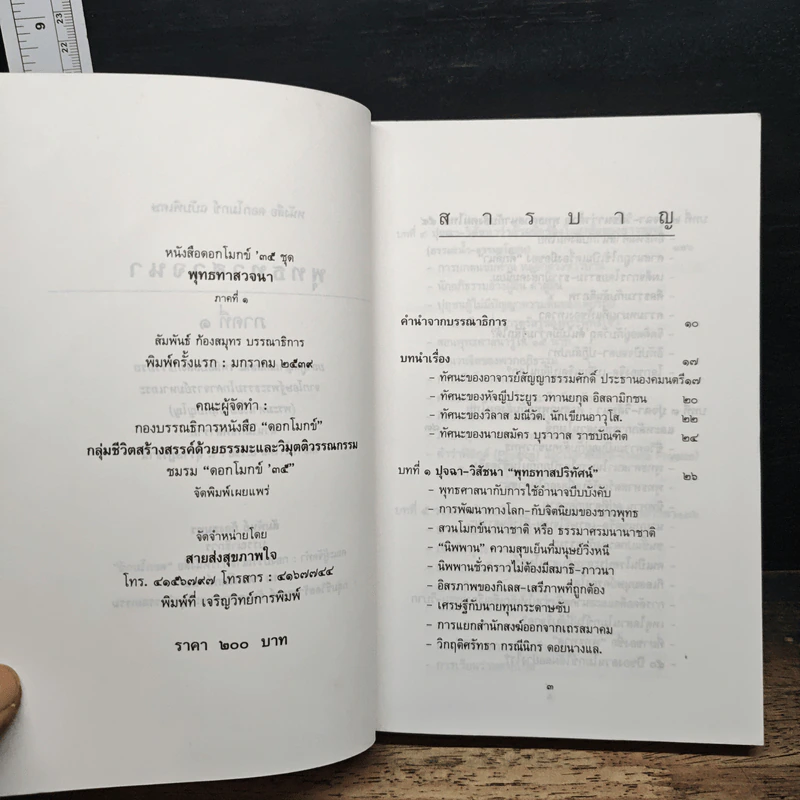 9
23
22
หนังสือดอกโมกข์ '๓๕ ชุด
พุทธทาสวจนา
ภาคที่ ๑
สัมพันธ์ ก้องสมุทร บรรณาธิการ
พิมพ์ครั้งแรก : มกราคม ๒๕๓๙
คณะผู้จัดทำ :
กองบรรณาธิการหนังสือ "ดอกโมกข์"
กลุ่มชีวิตสร้างสรรค์ด้วยธรรมะและวิมุตติวรรณกรรม
ชมรม "ดอกโมกข์ '๓๕"
จัดพิมพ์เผยแพร่
จัดจำหน่ายโดย
สายส่งสุขภาพใจ
โทร. ๔๑๕๖๗๙๗ โทรสาร : ๔๑๖๗๗๔๔
พิมพ์ที่ เจริญวิทย์การพิมพ์
ราคา ๒๐๐ บาท
ส า ร บ า ญ
คำนำจากบรรณาธิการ ๑๐
บทนำเรื่อง ๑๗
- ทัศนะของอาจารย์สัญญาธรรมศักดิ์ ประธานองคมนตรี ๑๗
- ทัศนะของหัจญีประยูร วทานยกุล อิสลามิกชน ๒๐
- ทัศนะของวิลาส มณีวัต. นักเขียนอาวุโส. ๒๒
- ทัศนะของนายสมัคร บุราวาส ราชบัณฑิต ๒๔
บทที่ ๑ ปุจฉา-วิสัชนา "พุทธทาสปริทัศน์" ๒๖
- พุทธศาสนากับการใช้อำนาจบีบบังคับ
- การพัฒนาทางโลก-กับจิตนิยมของชาวพุทธ
- สวนโมกข์นานาชาติ หรือ ธรรมาศรมนานาชาติ
- "นิพพาน" ความสุขเย็นที่มนุษย์วิ่งหนี
- นิพพานชั่วคราวไม่ต้องมีสมาธิ-ภาวนา
- อิสรภาพของกิเลส-เสรีภาพที่ถูกต้อง
- เศรษฐีกับนายทุนกระดาษซับ
- การแยกสำนักสงฆ์ออกจากเถรสมาคม
- วิกฤติศรัทธา กรณีนิกร ดอยนางแล.
๓